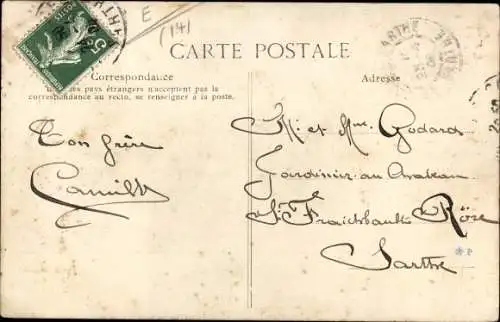 E
(14)
CARTE POSTALE
Correspondance
pays étrangers n'acceptent pas la
correspondance au recto, se renseigner à la poste.
Adresse
SARTHE
Ton frère
Camille
M. et Mme Godard
Jardinier au Chateau
St Fraimbault Röre
Sarthe